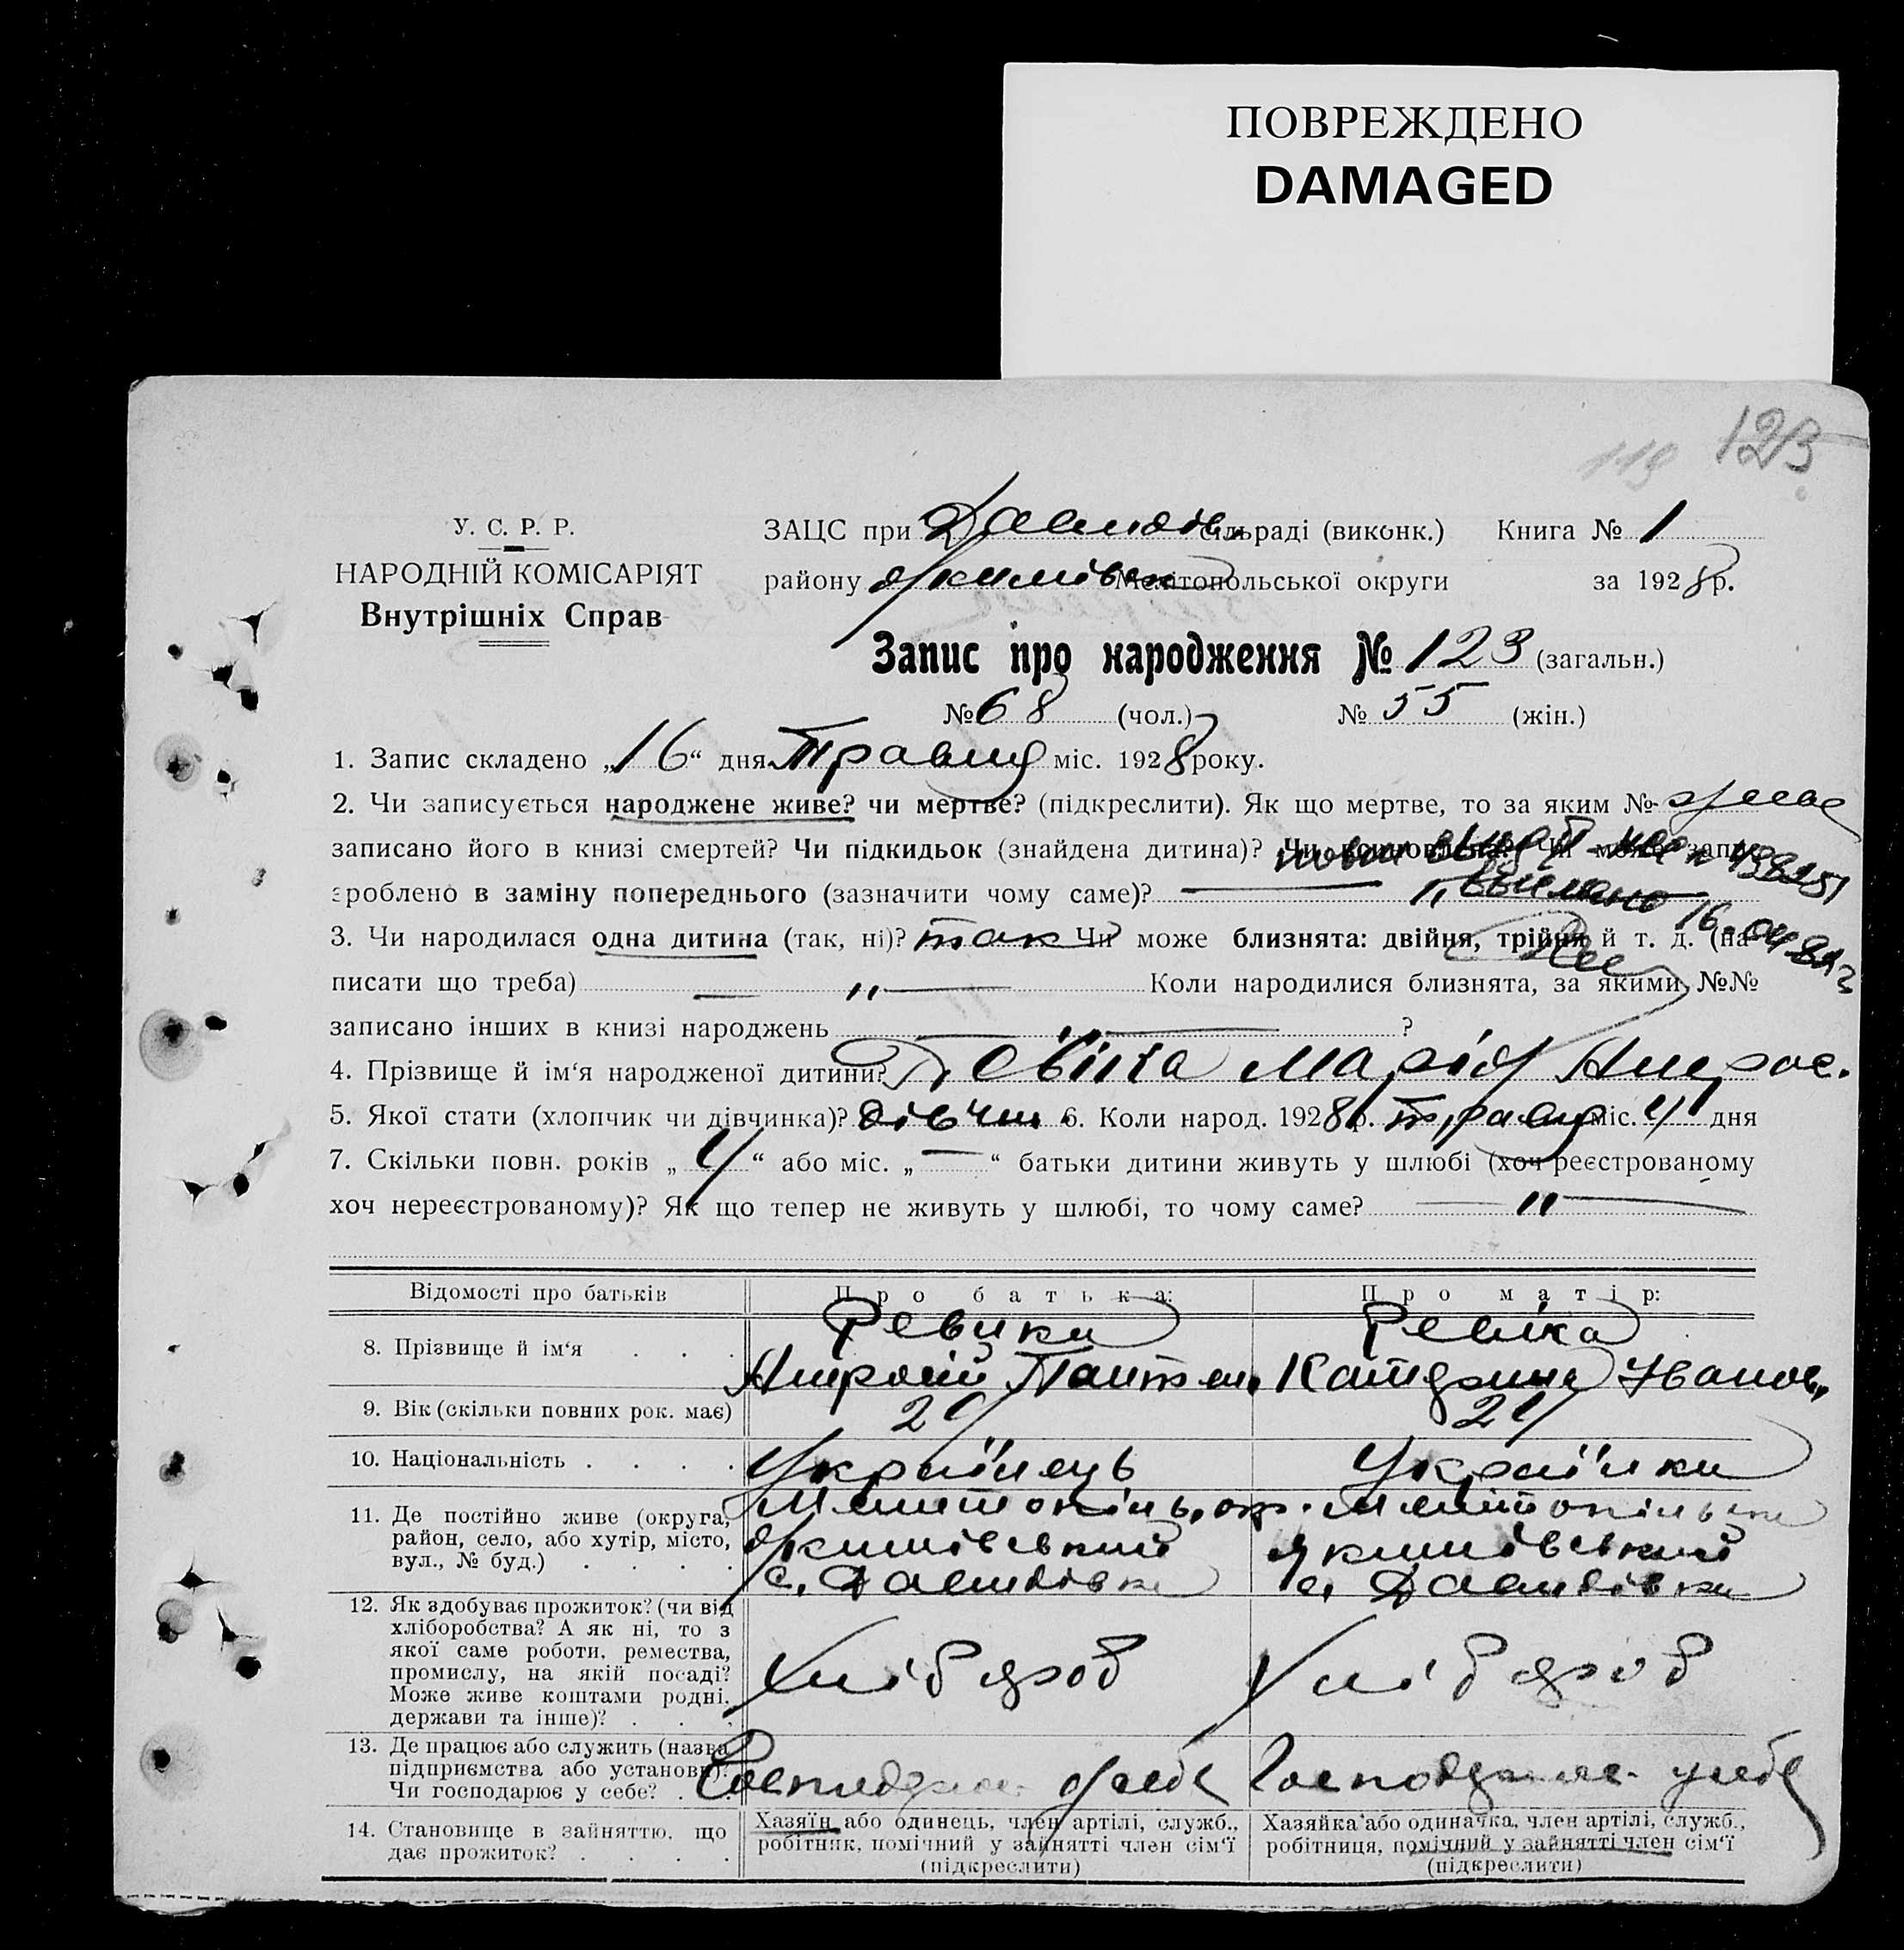 ПОВРЕЖДЕНО
DAMAGED
119 123
У. С. Р. Р.
НАРОДНІЙ КОМІСАРІЯТ
Внутрішніх Справ
ЗАЦС при Давидів. сільраді (виконк.) Книга № 1
району Якимівськ Мелітопольської округи за 1928 р.
Запис про народження № 123 (загальн.)
№ 68 (чол.) № 55 (жін.)
1. Запис складено „16“ дня Травня міс. 1928 року.
2. Чи записується народжене живе? чи мертве? (підкреслити). Як що мертве, то за яким №
записано його в книзі смертей? Чи підкидьок (знайдена дитина)? Чи може запис
зроблено в заміну попереднього (зазначити чому саме)?
3. Чи народилася одна дитина (так, ні)? так Чи може близнята: двійня, трійня й т. д. (на-
писати що треба) — „ — Коли народилися близнята, за якими №№
записано інших в книзі народжень — ?
4. Прізвище й ім‘я народженої дитини? Ревіка Марія
5. Якої стати (хлопчик чи дівчинка)? дівчин. 6. Коли народ. 1928 р. травня міс. 4 дня
7. Скільки повн. років „4“ або міс. „—“ батьки дитини живуть у шлюбі (хоч реєстрованому
хоч нереєстрованому)? Як що тепер не живуть у шлюбі, то чому саме? — „ —
Відомості про батьків Про батька: Про матір:
8. Прізвище й ім‘я . . . Ревика Ревіка
Пантел. Катерина Іванов.
9. Вік (скільки повних рок. має) 24 24
10. Національність . . . . Українець Українка
11. Де постійно живе (округа, район, село, або хутір, місто, вул., № буд.) . . . .
Мелитопільс. окр. Мелітопільськ
Якимівський Якимівський
с. Давидівка с. Давидівка
12. Як здобуває прожиток? (чи від
хліборобства? А як ні, то з
якої саме роботи, ремества,
промислу, на якій посаді?
Може живе коштами родні,
держави та інше)? . . .
Хліб ороб Хліб ороб
13. Де працює або служить (назва
підприємства або установи)?
Чи господарює у себе? . .
Господарює у себе Господарює у себе
14. Становище в зайняттю, що
дає прожиток? . . . .
Хазяїн або одинець, член артілі, служб.,
робітник, помічний у зайнятті член сім‘ї
(підкреслити)
Хазяйка або одиначка, член артілі, служб.,
робітниця, помічний у зайнятті член сім‘ї
(підкреслити)